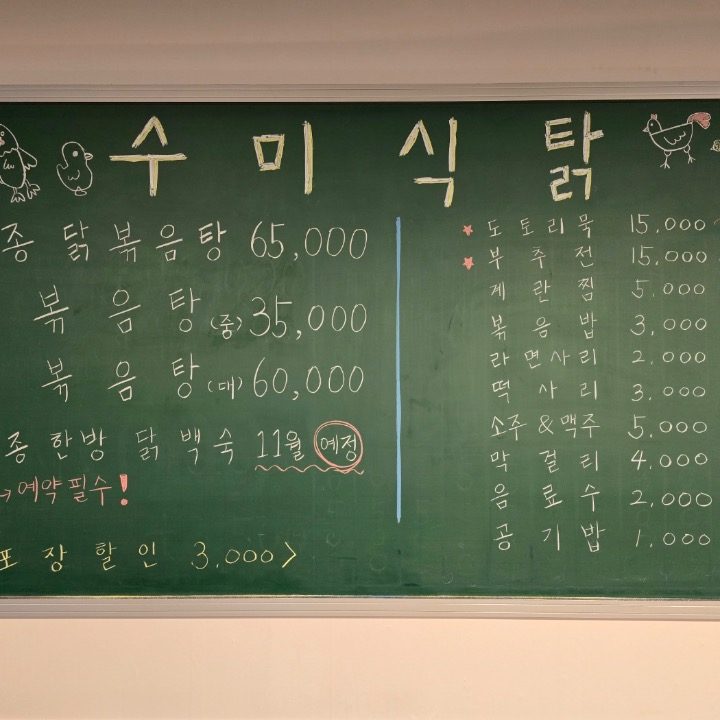 수미식탉
종 닭볶음탕 65,000
볶음탕 (중) 35,000
볶음탕 (대) 60,000
종 한방 닭백숙 11월 예정
→예약필수!
포장할인 3,000>
★ 도토리묵 15,000
★ 부추전 15,000
계란찜 5,000
볶음밥 3,000
라면사리 2,000
떡사리 3,000
소주&맥주 5,000
막걸리 4,000
음료수 2,000
공기밥 1,000